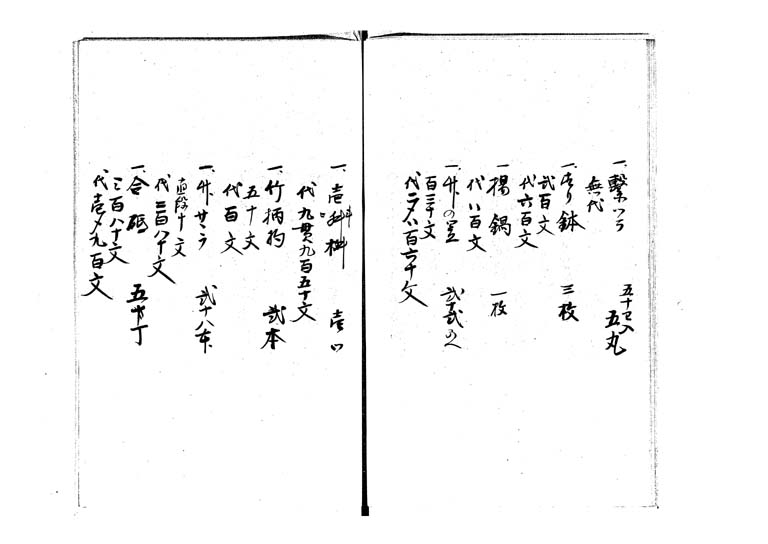 一、繋つら 五十わ入 五丸
無代
一、すり鉢 三枚
弐百文
代六百文
一、揚鍋 一枚
代八百文
一、竹の置 弐十弐
百三十文
代二〆八百六十文
一、壱斗桝 壱つ
代九貫九百五十文
一、竹柄杓 弐本
五十文
代百文
一、竹サヽラ 弐十八本
直段十文
代二百八十文
一、合砥 五十丁
三百八十文
代壱〆九百文